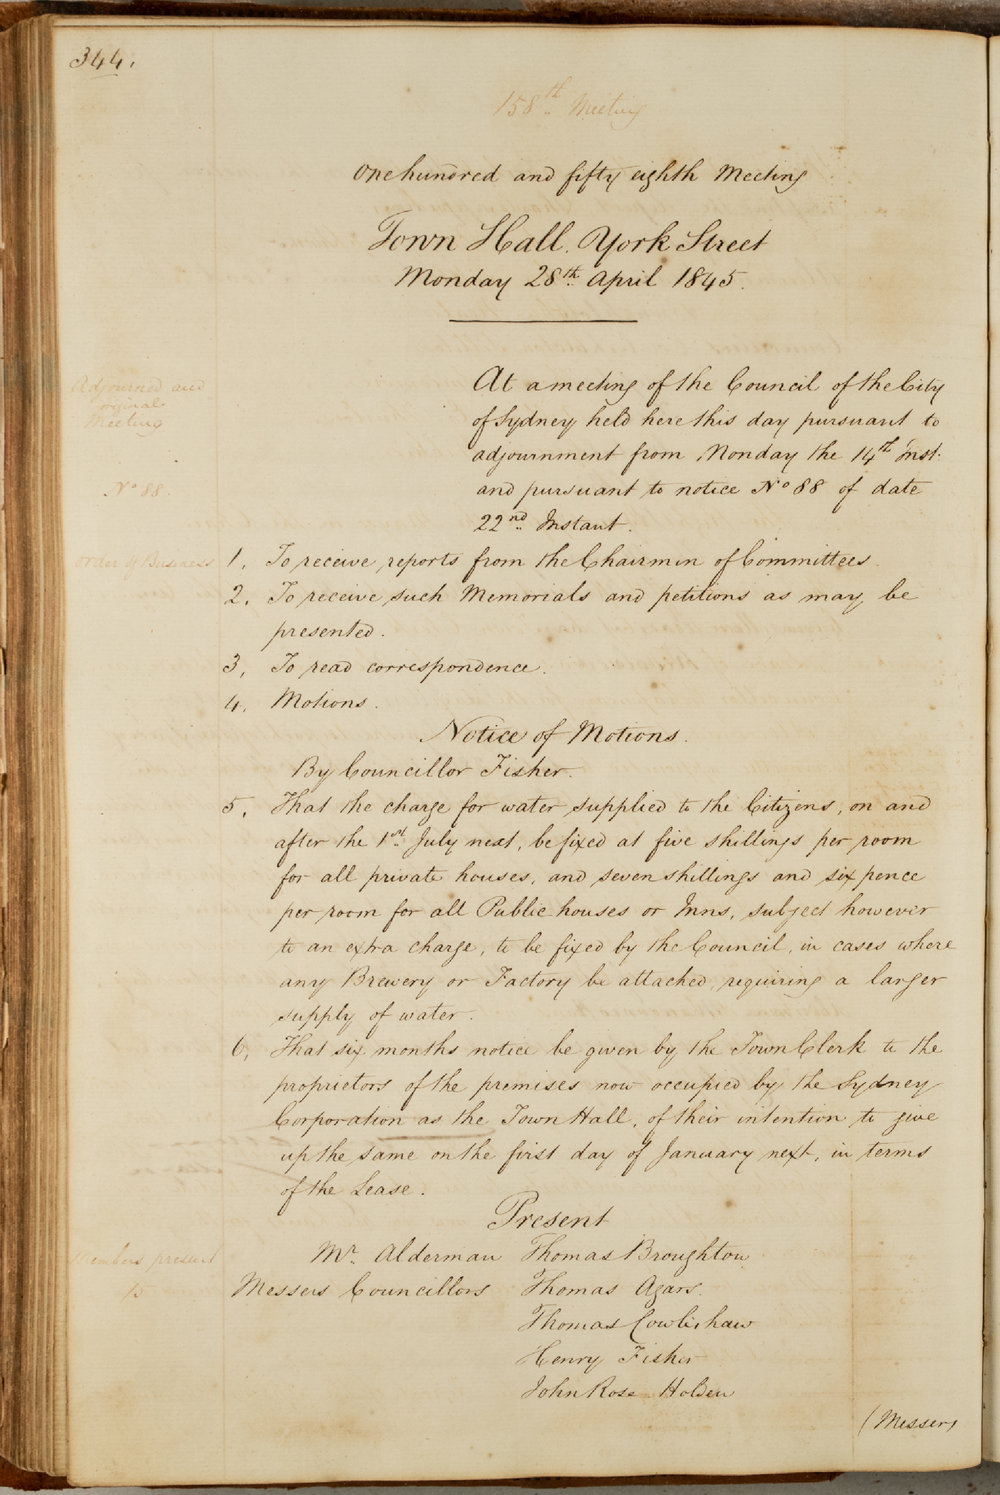 344.
158th Meeting
One hundred and fifty eighth Meeting
Town Hall. York Street
Monday 28th April 1845.
Adjourned and
orginal
Meeting
At a meeting of the Council of the City
of Sydney held here this day pursuant to
adjournment from Monday the 14th Inst.
No 88.
and pursuant to notice No 88 of date
22nd Instant.
Order of Business
1. To receive reports from the Chairmen of Committees.
2. To receive such Memorials and petitions as may be
presented.
3. To read correspondence.
4. Motions.
Notice of Motions.
By Councillor Fisher.
5. That the charge for water supplied to the Citizens, on and
after the 1st July next, be fixed at five shillings per room
for all private houses, and seven shillings and six pence
per room for all Public houses or Inns, subject however
to an extra charge, to be fixed by the Council, in cases where
any Brewery or Factory be attached, requiring a larger
supply of water.
6. That six months notice be given by the Town Clerk to the
proprietors of the premises now occupied by the Sydney
Corporation as the Town Hall, of their intention to give
up the same on the first day of January next, in terms
of the Lease.
Present
Members present
15
Mr. Alderman Thomas Broughton
Messers Councillors Thomas Agars.
Thomas Cowlishaw
Henry Fisher
John Rose Holden
(Messers